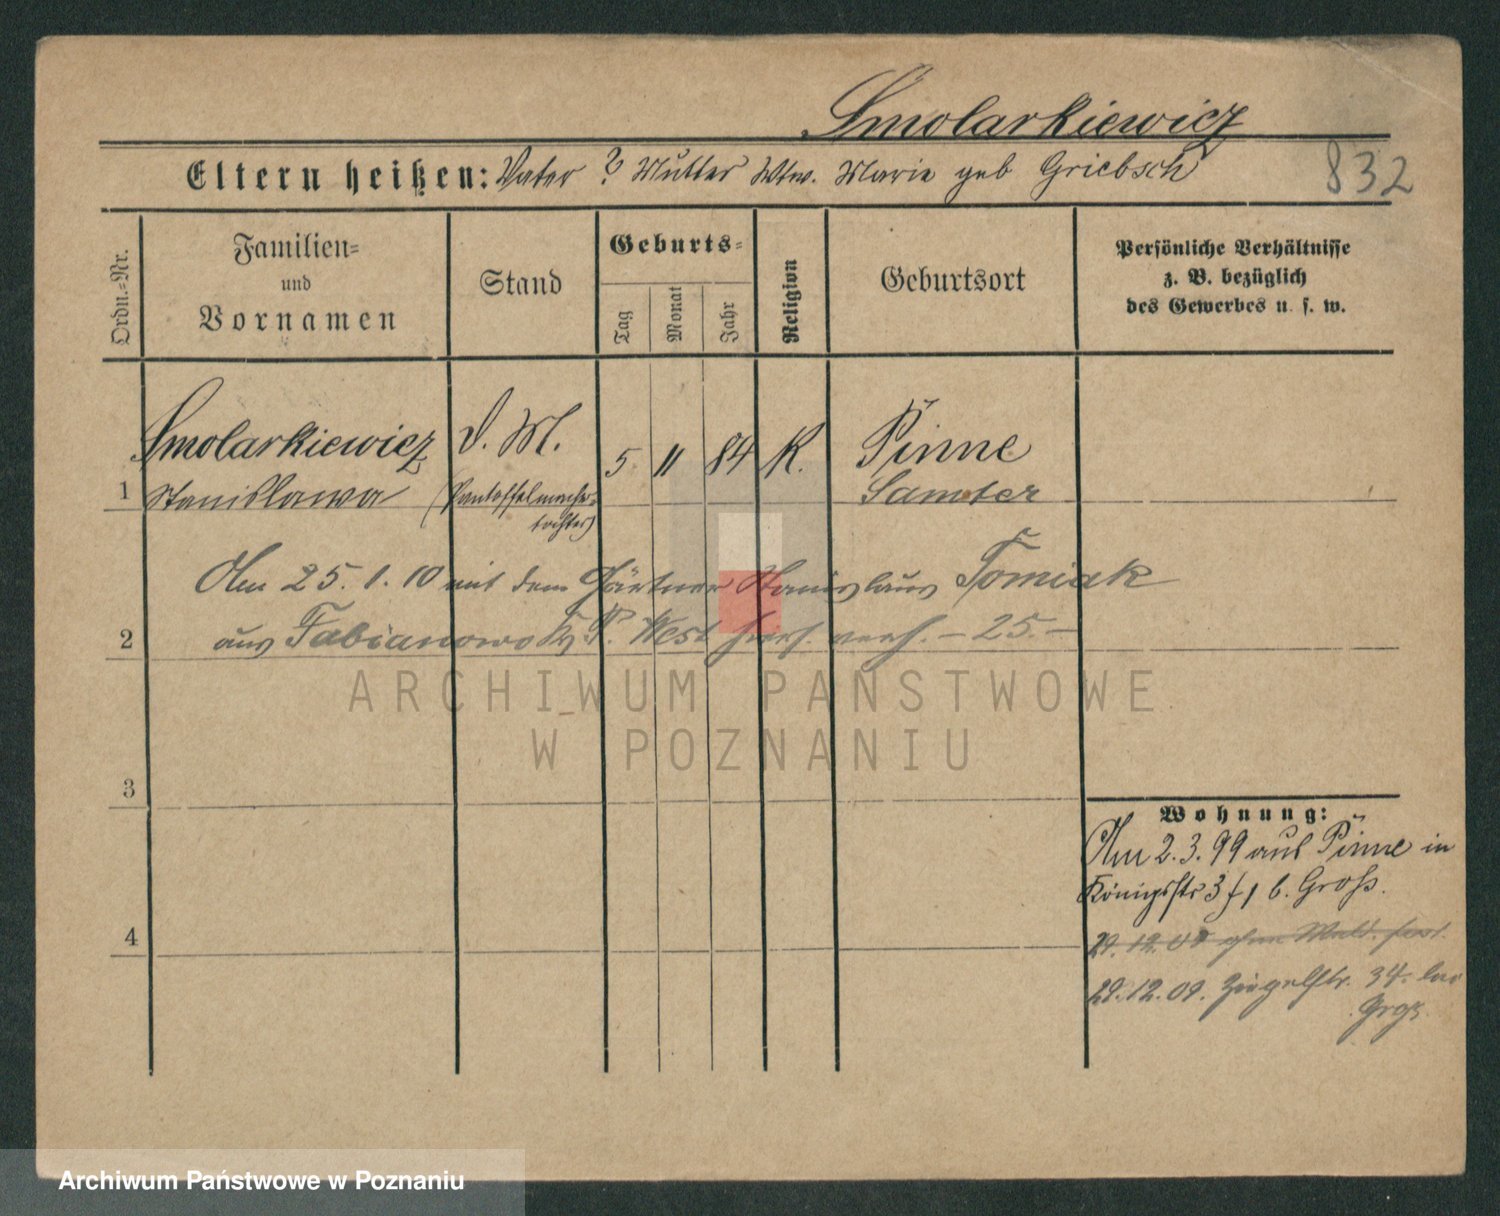 Smolarkiewicz
Eltern heißen: Vater ? Mutter Wtw. Marie geb Griebsch
832
Ordn.=Nr.
Familien=
und
Vornamen
Stand
Geburts=
Tag
Monat
Jahr
Religion
Geburtsort
Persönliche Verhältnisse
z. B. bezüglich
des Gewerbes u. s. w.
Smolarkiewicz D. M. 5 11 84 K. Pinne
1 Stanislawa (Pantoffelmacher- Samter
tochter)
Am 25.1.10 mit dem Gärtner Stanislaus Tomiak
2 aus Fabianowo Kr P. West hier verh. – 25. –
ARCHIWUM PAŃSTWOWE
W POZNANIU
3
4
Wohnung:
Am 2.3.99 aus Pinne in
Königsstr 3 b. Groß.
29.12.09 ohne
29.12.09. Ziegelstr. 34. bei
Groß.
Archiwum Państwowe w Poznaniu